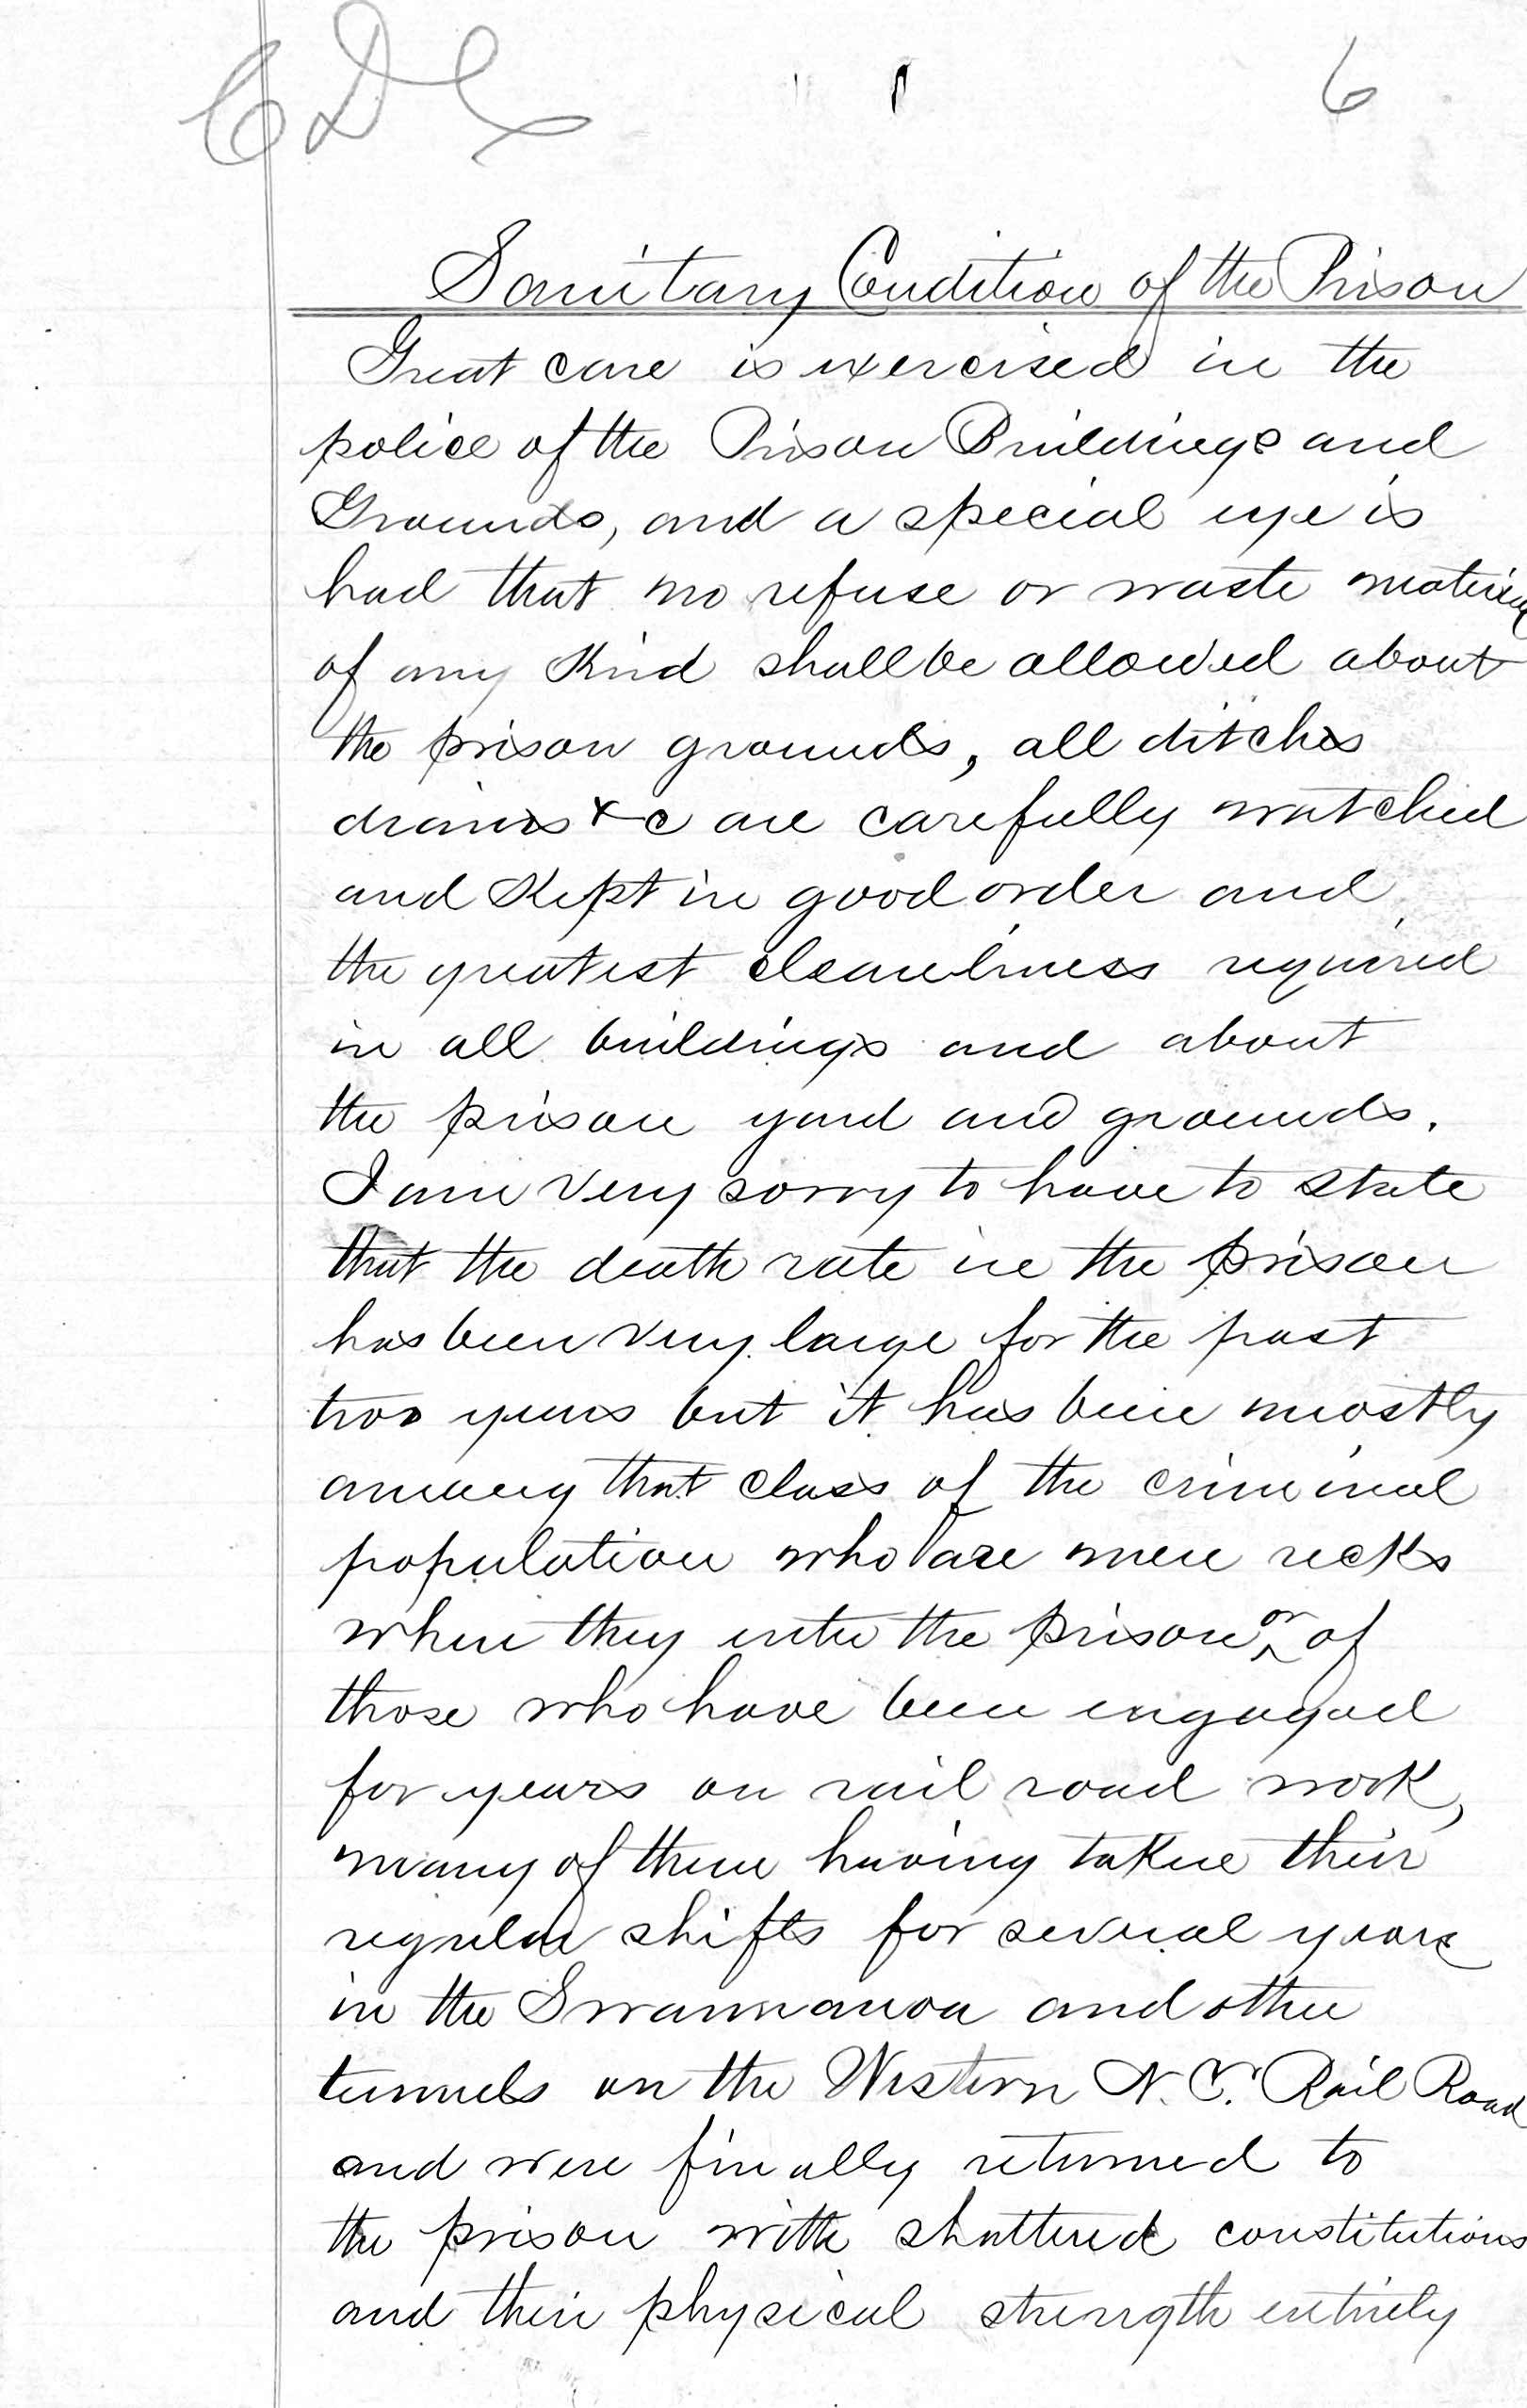 6
Sanitary Condition of the Prison
Great care is exercised in the
police of the Prison Buildings and
Grounds, and a special eye is
had that no refuse or waste material
of any Kind shall be allowed about
the prison grounds, all ditches
drains &c are carefully watched
and Kept in good order and
the greatest cleanliness required
in all buildings and about
the prison yard and grounds.
I am very sorry to have to state
that the death rate in the prison
has been very large for the past
two years but it has been mostly
among that class of the criminal
population who are mere recks
when they enter the prison or of
those who have been engaged
for years on rail road work,
many of them having taken their
regular shifts for several years
in the Swannanoa and other
tunnels on the Western N.C. Rail Road
and were finally returned to
the prison with shattered constitutions
and their physical strength entirely